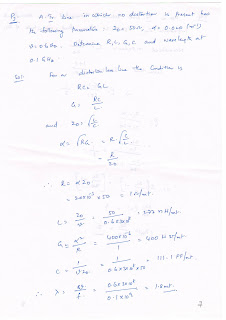 P: A Tx line in which no distortion is present has
the following Parameters: Z0 = 50Ω, α = 0.020 (m⁻¹)
υ = 0.6 υ0. Determine R, L, G, C and wavelength at
0.1 GHz.
Sol: For a distortion less line the condition is
RC = GL
G = RC/L
and Z0 = √(L/C)
α = √RG = R√(C/L)
= R/Z0
∴ R = α Z0
= 20×10⁻³ × 50 = 1 Ω/mt.
L = Z0/υ = 50/(0.6×3×10⁸) = 277 nH/mt.
G = α²/R = 400×10⁻⁶/1 = 400 μS/mt.
C = 1/(υZ0) = 1/(0.6×3×10⁸×50) = 111.1 PF/mt.
∴ λ = υ/f = 0.6×3×10⁸/0.1×10⁹ = 1.8mt.